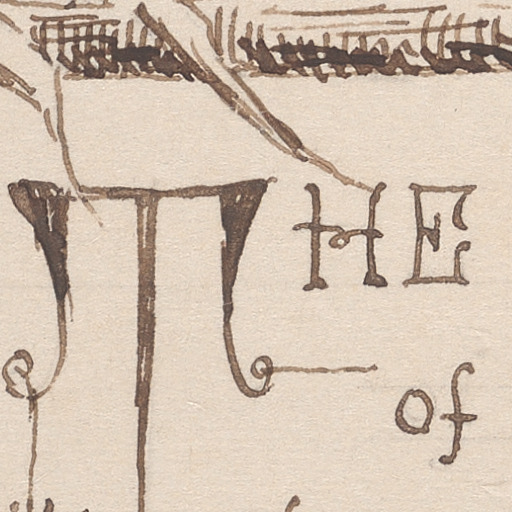 THE
of